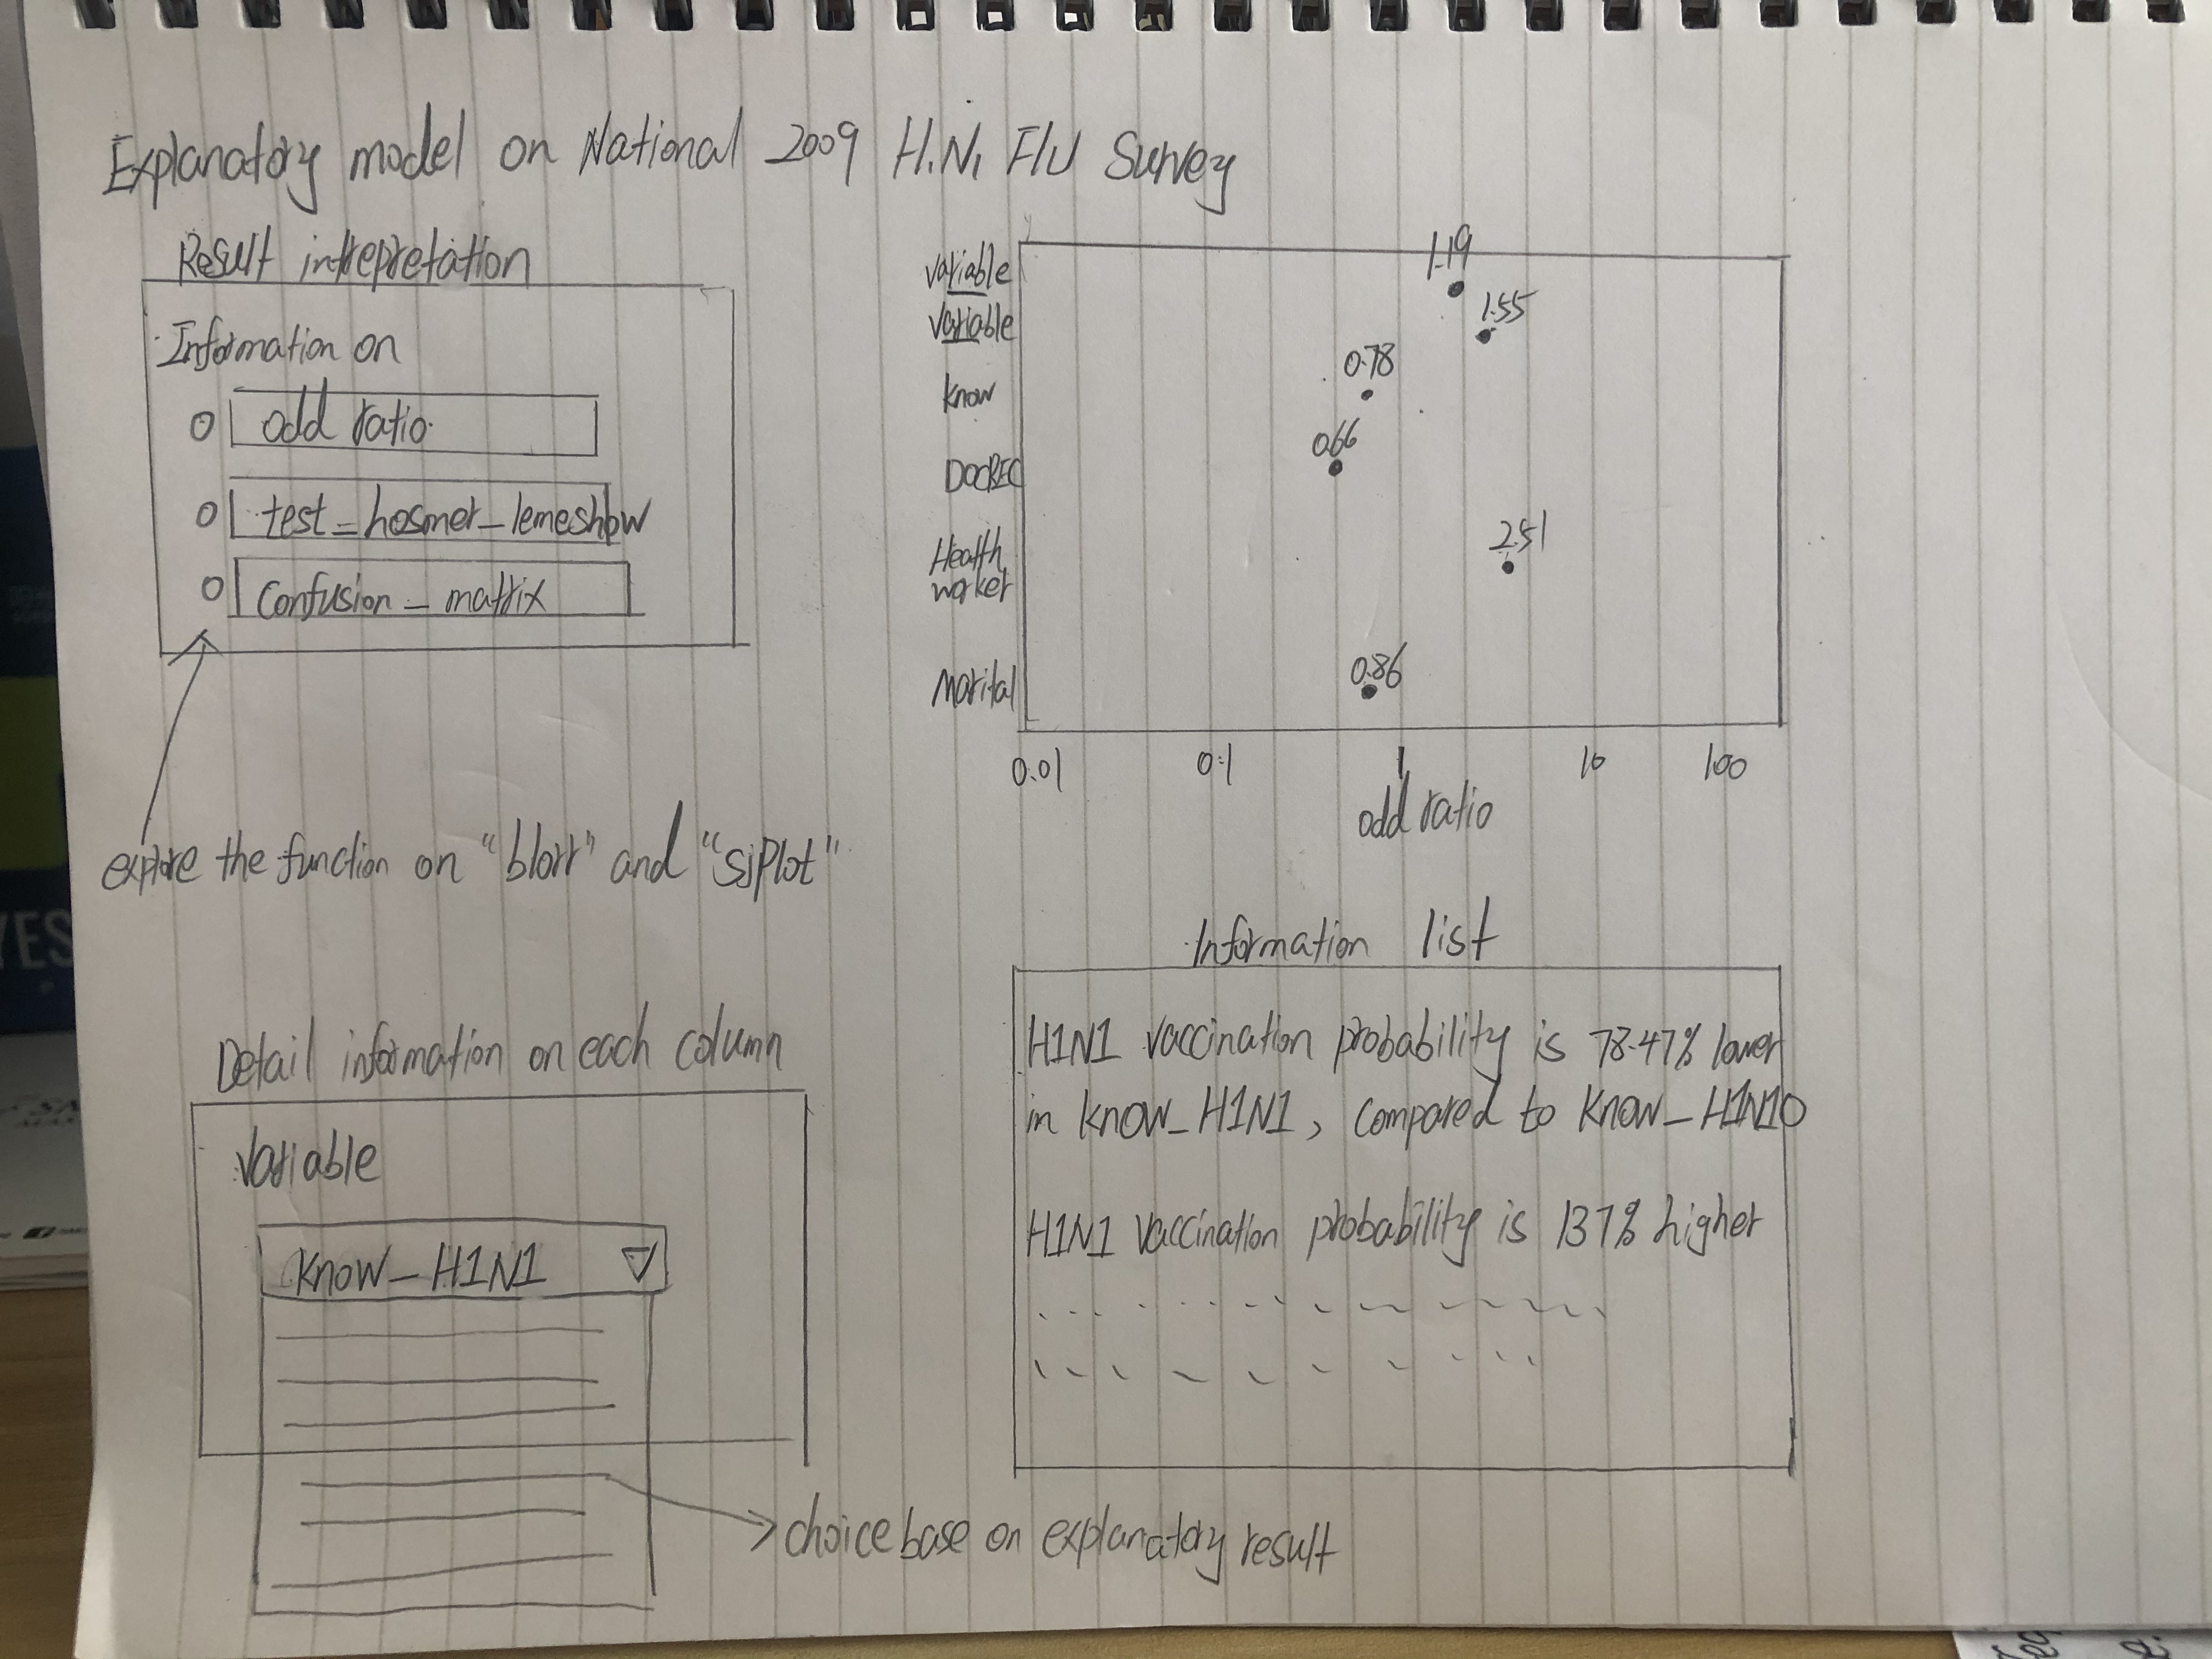 Explanatory model on National 2009 H1N1 Flu Survey
Result intrepretation
Information on
odd ratio
test_hosmer_lemeshow
Confusion_matrix
explore the function on "blorr" and "sjPlot"
variable
variable
know
DOCREC
Health
worker
Marital
1.19
1.55
0.78
0.66
2.51
0.86
0.01 0.1 1 10 100
odd ratio
Information list
H1N1 vaccination probability is 78.47% lower
in know_H1N1, compared to Know_H1N10
H1N1 vaccination probability is 137% higher
Detail information on each column
Variable
Know_H1N1
choice base on explanatory result
YES